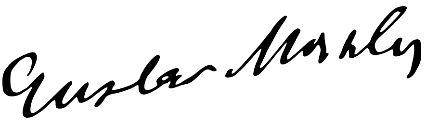 Gustav Mahler